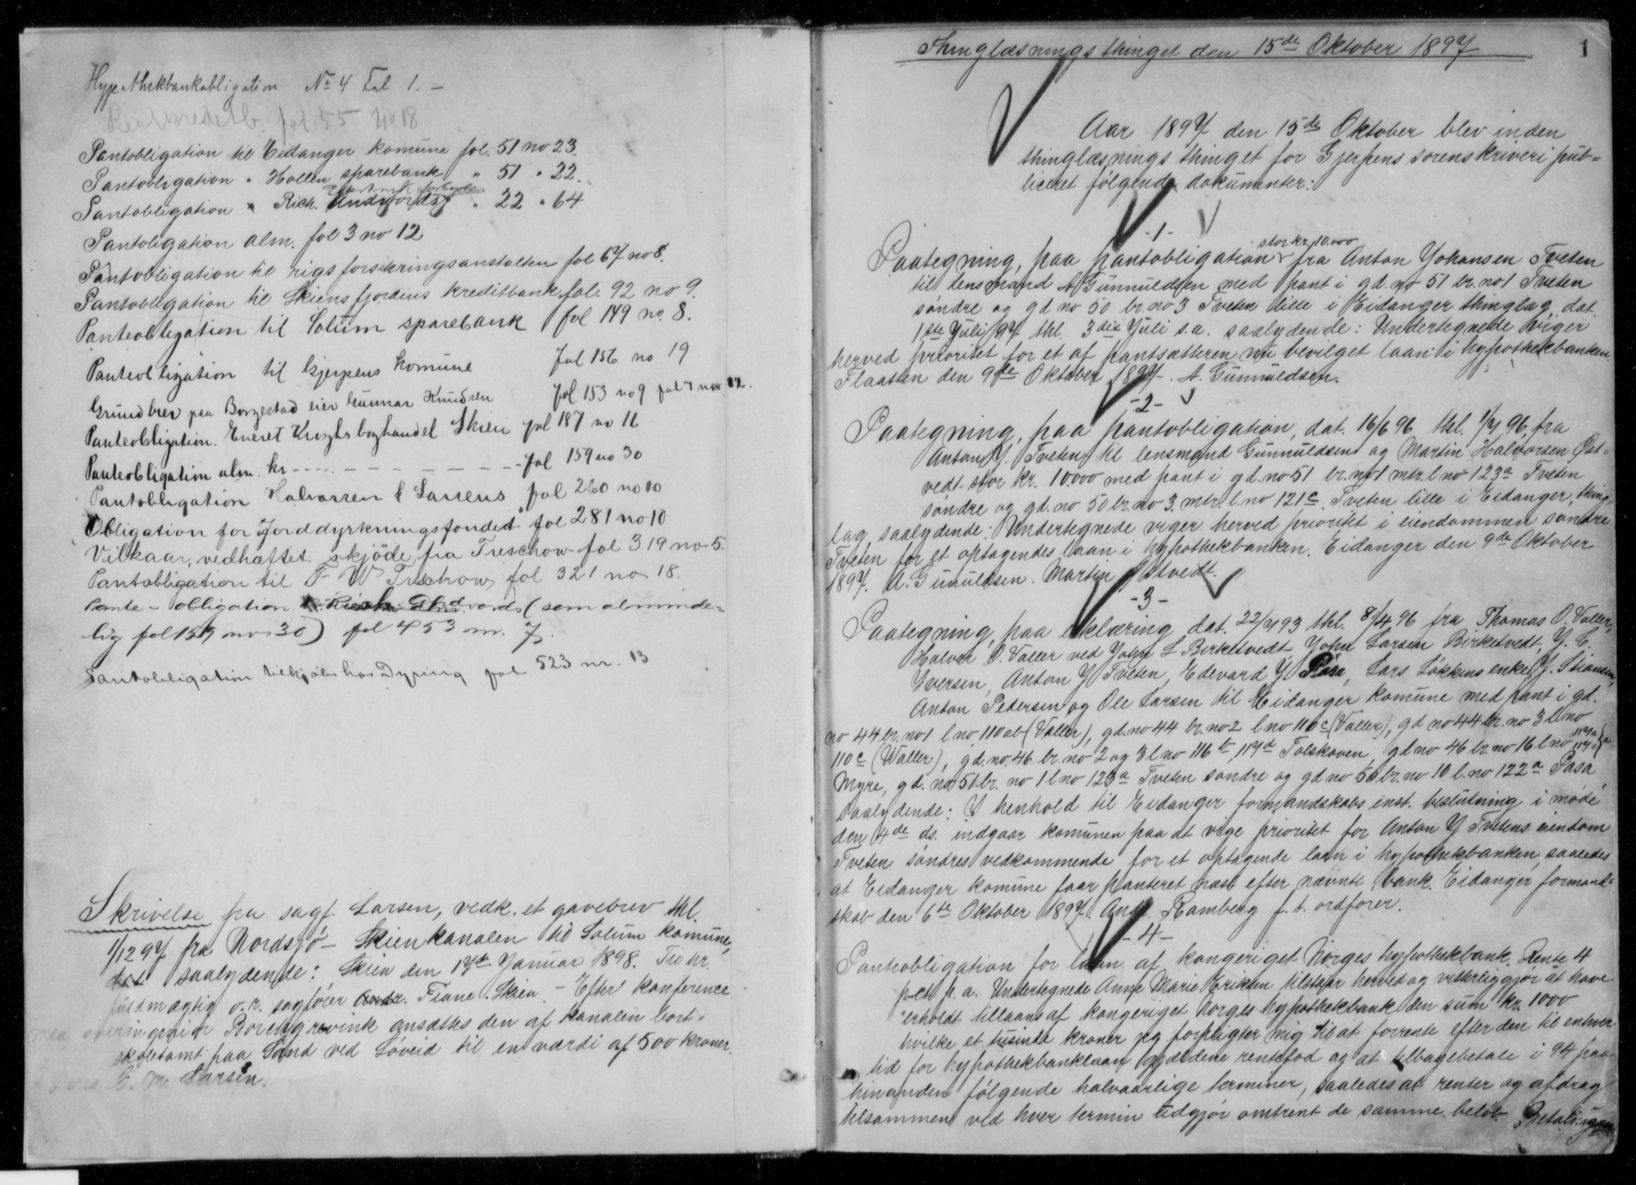 Hypothekbankobligation No 4 Fol 1. –
fol. 55 No 18
Pantobligation til Eidanger komune fol. 51 no 23.
Pantobligation " Hollen sparebank " 51 " 22.
Pantobligation " Rich. Andvordsg " 22 " 64
Pantoligation alm. fol 3 no 12
Pantobligation til rigsforsikringsanstalten fol 67 no 8.
Pantobligation til Skiensfjordens kreditbank fol. 92 no 9.
Panteobligation til Solum sparebank fol 149 no. 8.
Panteobligation til Gjerpens komune fol 156 no 19
Grundbrev paa Borgestad eier Gunnar Knudsen fol 153 no 9
Panteobligation. Eneret Kroghs boghandel Skien fol 187 no 11
Panteobligation alm. kr - - - - - - - - - fol 159 no 30
Pantobligation Halvorsen & Larsens fol 260 no 10
Obligation for Jorddyrkningsfondet fol 281 no 10
Vilkaar, vedhæftet skjöde fra Treschow fol 319 no 5.
Pantobligation til F W Treschow fol 321 no 18.
Pante-obligation Rich. Andvords (som alminde=
lig fol 159 no 30) fol 453 nr. 7.
Pantobligation tilkjøbs hos Dyring fol 523 nr. 13
Skrivelse fra sagf. Larsen, vedk. et gavebrev thl.
1/12 97 fra Nordsjö-Skienkanalen til Solum komune,
saalydende: Skien den 17de Januar 1898. Til hr.
fuldmægtig o.r. sagfører Fiane. Skien – Efter konference
med overingeniør Borchgrevink ansættes den af kanalen bort-
skjletamt paa Sand ved Løveid til en værdi af 500 kroner.
E. M. Larsen.
Thinglæsningsthinget den 15de Oktober 1897.
1
Aar 1897 den 15de Oktober blev inden
thinglæsningsthinget for Gjerpens sorenskriveri pub=
liceret følgende dokumenter:
-1-
stor kr. 10.000
Paategning, paa pantobligation fra Anton Johansen Tveten
til lensmand A Gunnuldsen med pant i gd. no 51 br. no 1 Tveten
søndre og gd no 50 br. no 3 Tveten lille i Eidanger thinglag, dat.
1ste Juli 97 thl. 3die Juli s.a. saalydende: Undertegnede viger
herved prioritet for et af pantsætteren nu bevilget laan i hypothekbanken.
Flaatten den 9de Oktober 1897. A. Gunnuldsen.
-2-
Paategning, paa pantobligation, dat. 16/6 96 thl. 1/7 96 fra
Anton J. Tveten til lensmand Gunnuldsen og Martin Halvorsen Øst=
vedt stor kr. 10000 med pant i gd. no 51 br. no 1 mtr. l. no 123a Tveten
søndre og gd. no 50 br. no 3. mtr. l. no 121c. Tveten lille i Eidanger, thing-
lag, saalydende: Undertegnede viger herved prioritet i eiendommen søndre
Tveten for et optagendes laan i hypothekbanken. Eidanger den 9de Oktober
1897. A. Gunnuldsen. Martin Østvedt.
-3-
Paategning, paa erklæring dat. 22/7 93 thl. 8/4 96 fra Thomas O. Valler,
Halvor O. Valler ved John L Birketvedt, John Larsen Birketvedt, J. C.
Iversen, Anton J Tveten, Edevard J Pasa, Lars Løkkens enke, J. Stiansen,
Anton Pedersen og Ole Larsen til Eidanger komune med pant i gd.
no 44 br. no 1 l. no 110 ab (Valler), gd. no 44 br. no 2 l. no 110c (Valler), gd no 44 br. no 3 l. no
110c (Valler), gd. no. 46 br. no 2 og 3 l. no 116b, 117d Tolskoven, gd no 46 br. no 16 l. no
Myre, gd. no 51 br. no 1 l. no 123a Tveten søndre og gd no 50 br. no 10 l. no 122a Pasa
saalydende: I henhold til Eidanger formandskabs enst. beslutning i møde
den 4de ds. indgaar komunen paa at vige prioritet for Anton J Tvetens eiendom
Tveten søndres vedkommende for et optagende laan i hypothekbanken, saaledes
at Eidanger komune faar panteret næst efter nævnte bank. Eidanger formand=
skab den 6te Oktober 1897. Ang. Ramberg f. t. ordfører.
-4-
Panteobligation for laan af kongeriget Norges hypothekbank. Rente 4
pct. p. a. Undertegnede Anne Marie Eriksen tilstaar herved og vitterliggjør at have
erholdt tillaans af kongeriget Norges hypothekbank den sum kr. 1000
hvilke et tusinde kroner jeg forpligter mig til at forrente efter den til enhver
tid for hypothekbanklaan gjældene rentefod og at tilbagebetale i 94 paa
hinanden følgende halvaarlige terminer, saaledes at renter og afdrag
tilsammen ved hver termin udgjør omtrent de samme beløb. Betalingen